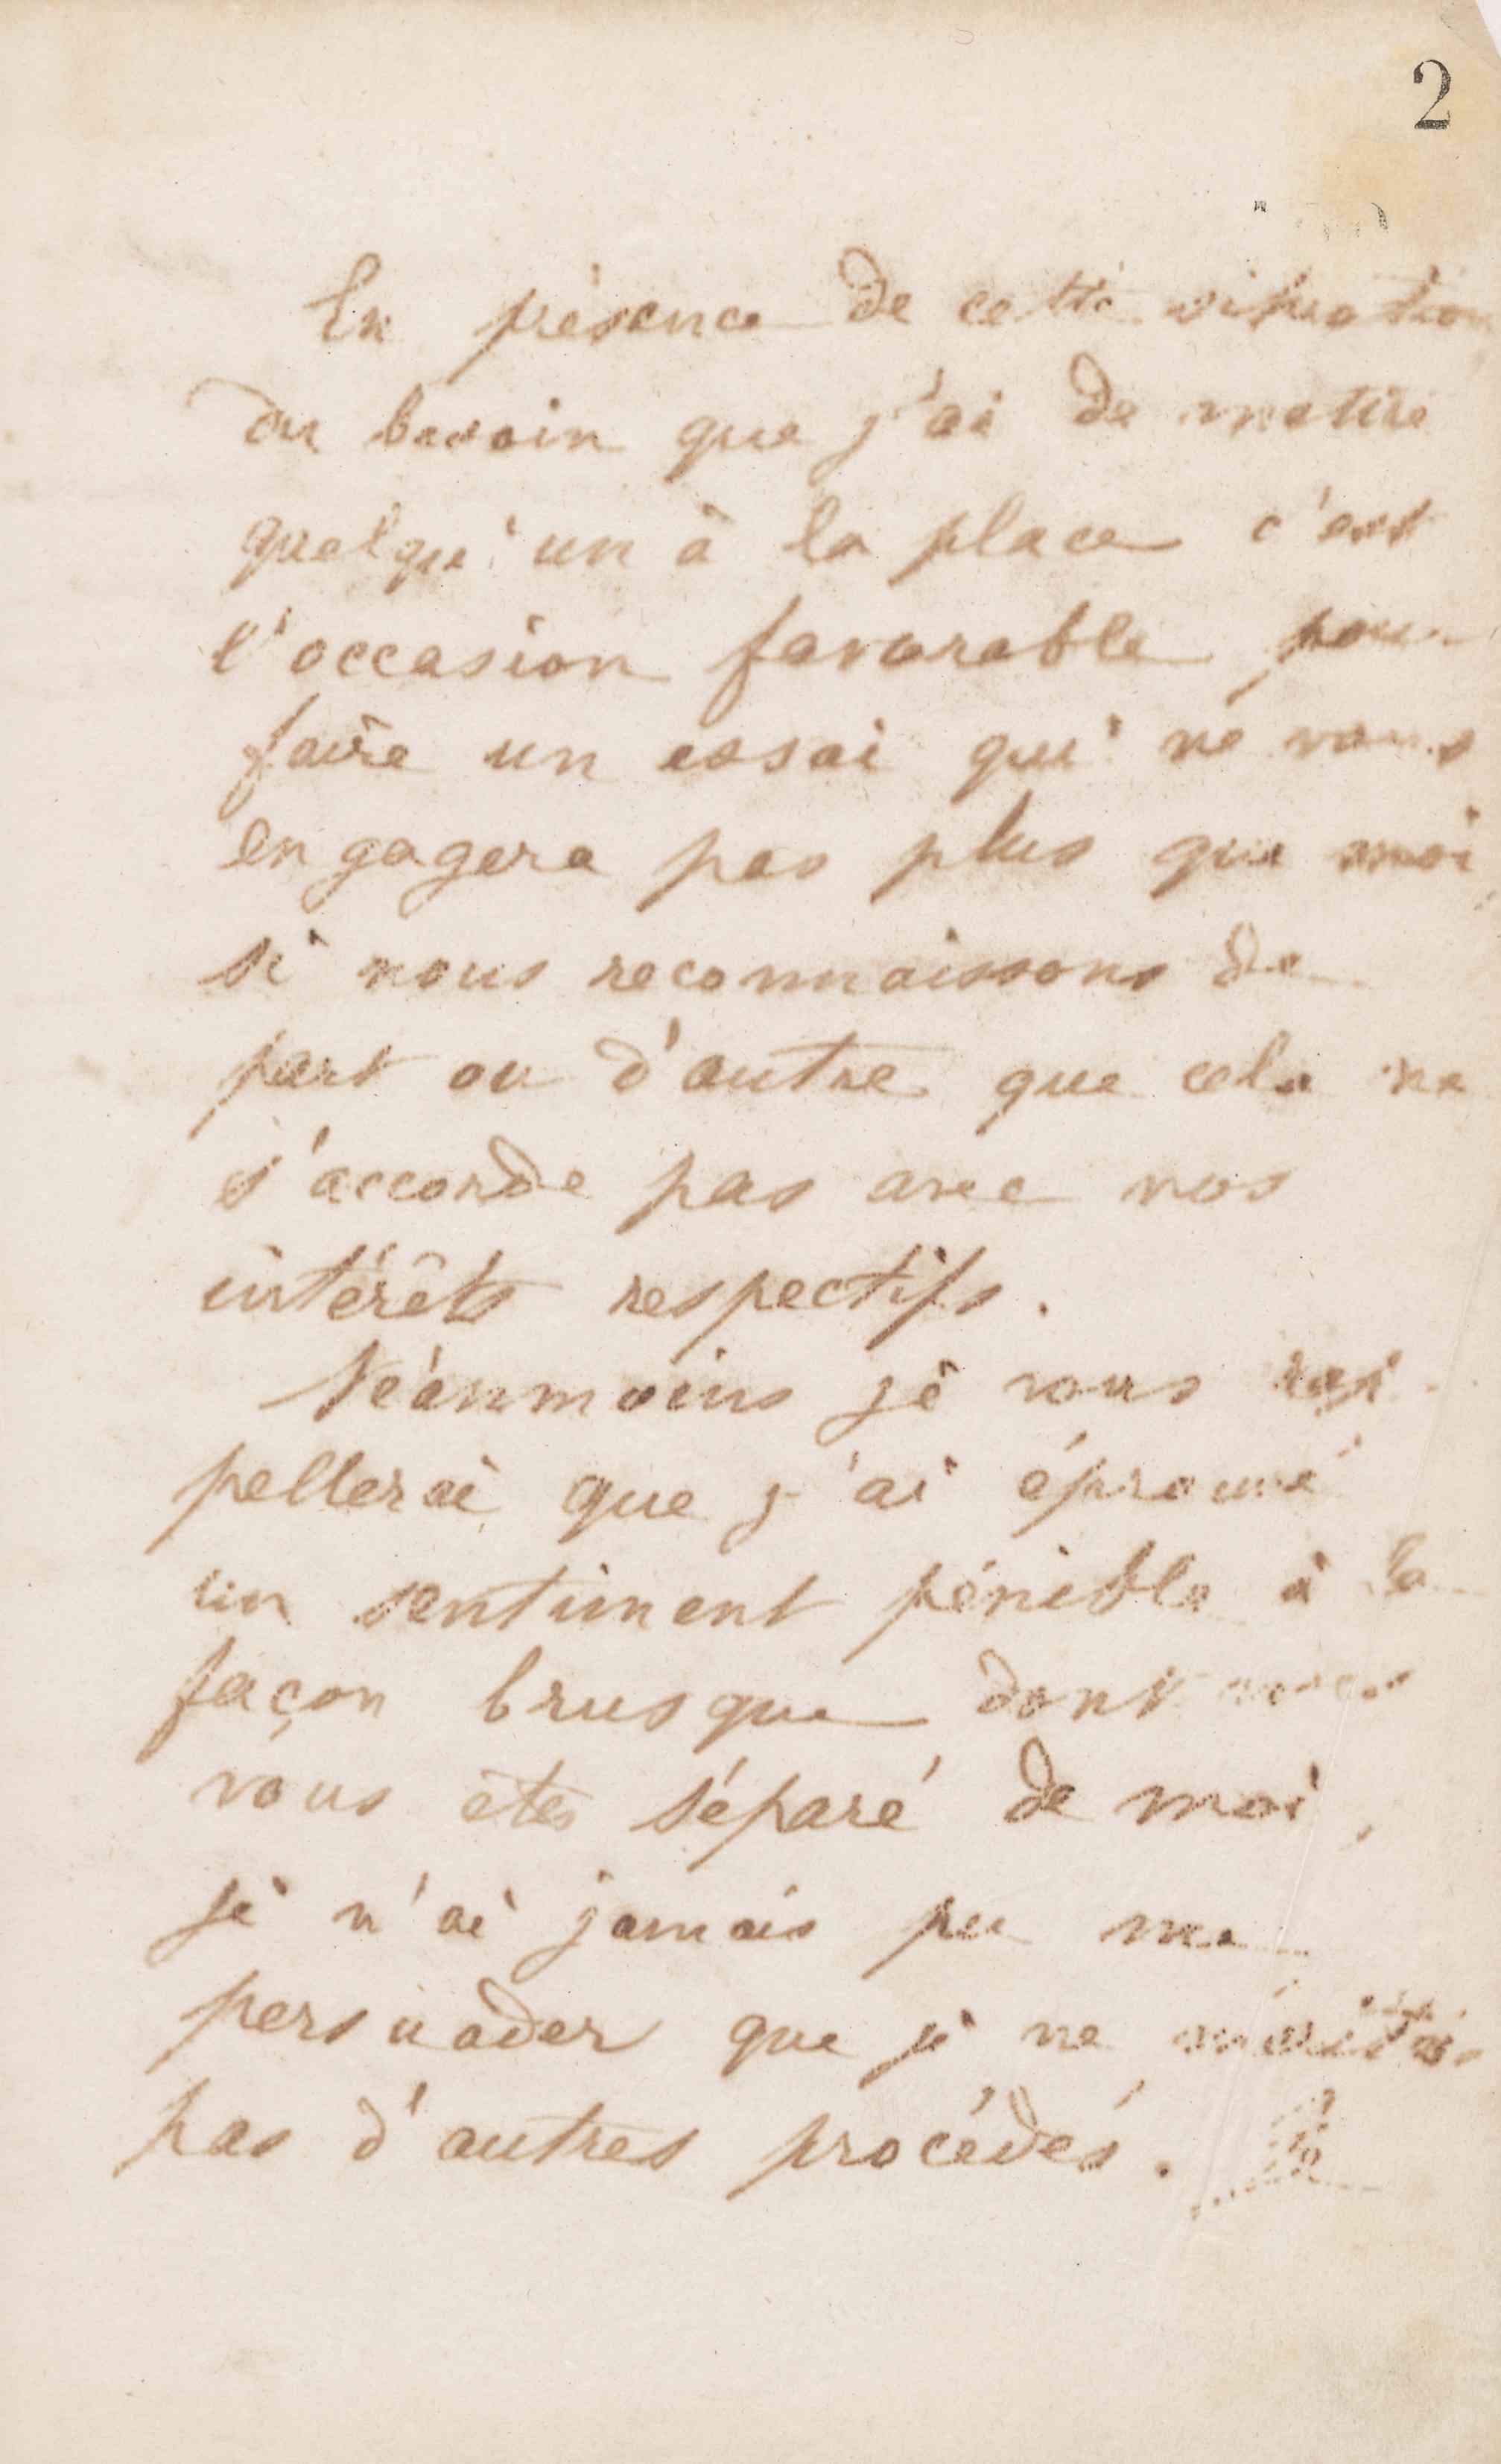 2
En présence de cette situation
du besoin que j'ai de mettre
quelqu'un à la place c'est
l'occasion favorable pour
faire un essai qui ne vous
engagera pas plus que moi,
si nous reconnaissons de
part ou d'autre que cela ne
s'accorde pas avec nos
intérêts respectifs.
Néanmoins je vous rap-
pellerai que j'ai éprouvé
un sentiment pénible à la
façon brusque dont vous
vous êtes séparé de moi,
je n'ai jamais pu me
persuader que je ne méritais
pas d'autres procédés.